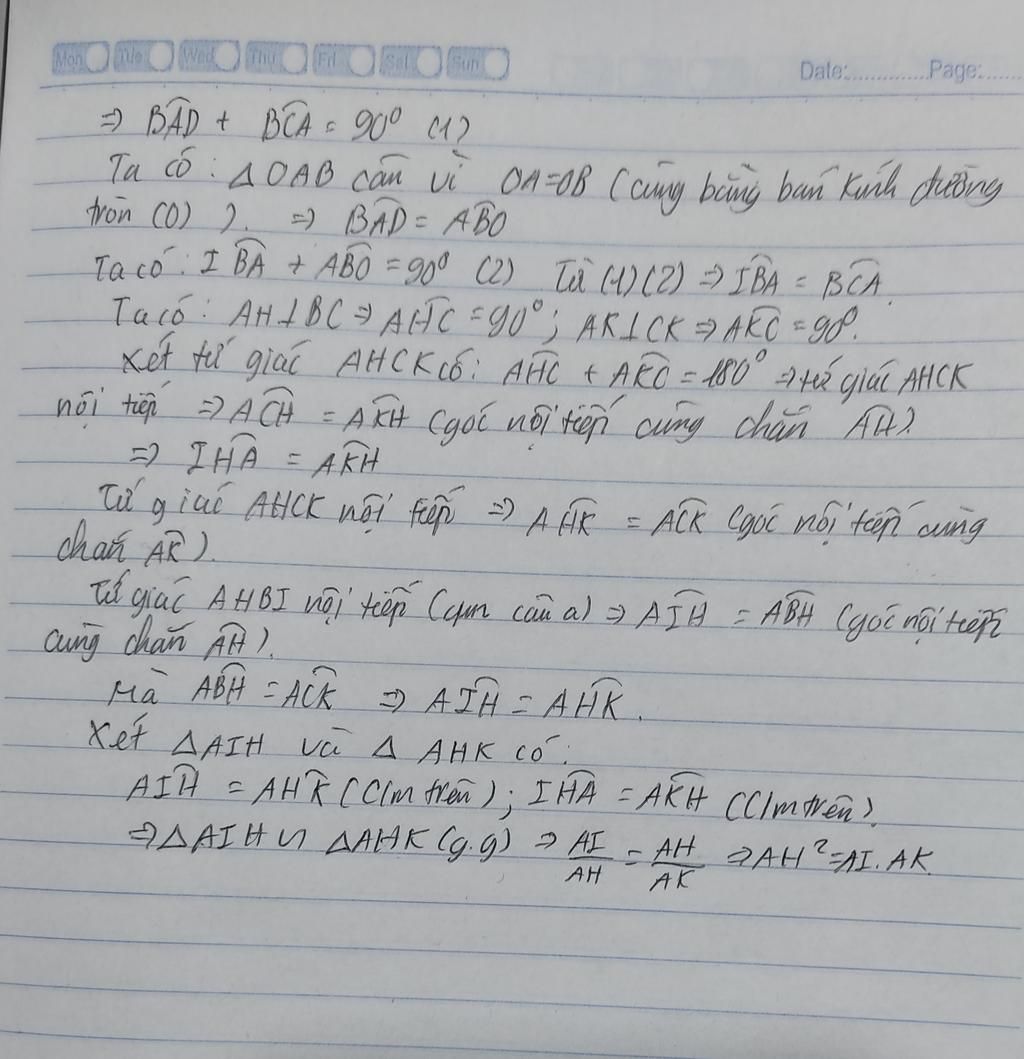 Mon Tue Wed Thu Fri Sat Sun
Date:.............Page:.......
=> BÂD + BĈA = 90⁰ (1)
Ta có : △OAB cân vì OA=OB (cùng bằng bán kính đường
tròn (O) ). => BÂD = AB̂O
Ta có : IB̂A + AB̂O = 90⁰ (2) Từ (1)(2) => IB̂A = BĈA.
Ta có : AH⊥BC => AĤC = 90⁰; AK⊥CK => AK̂C = 90⁰.
Xét tứ giác AHCK có: AĤC + AK̂C = 180⁰ => tứ giác AHCK
nội tiếp => AĈH = AK̂H (góc nội tiếp cùng chắn A͡H).
=> IĤA = AK̂H
Tứ giác AHCK nội tiếp => AĤK = AĈK (góc nội tiếp cùng
chắn A͡K).
Tứ giác AHBI nội tiếp (cm câu a) => AÎH = AB̂H (góc nội tiếp
cùng chắn A͡H).
Mà AB̂H = AĈK => AÎH = AĤK.
Xét △AIH và △ AHK có:
AÎH = AĤK (C/m trên) ; IĤA = AK̂H (C/m trên).
=> △AIH ∽ △AHK (g.g) => AI/AH = AH/AK => AH² = AI.AK